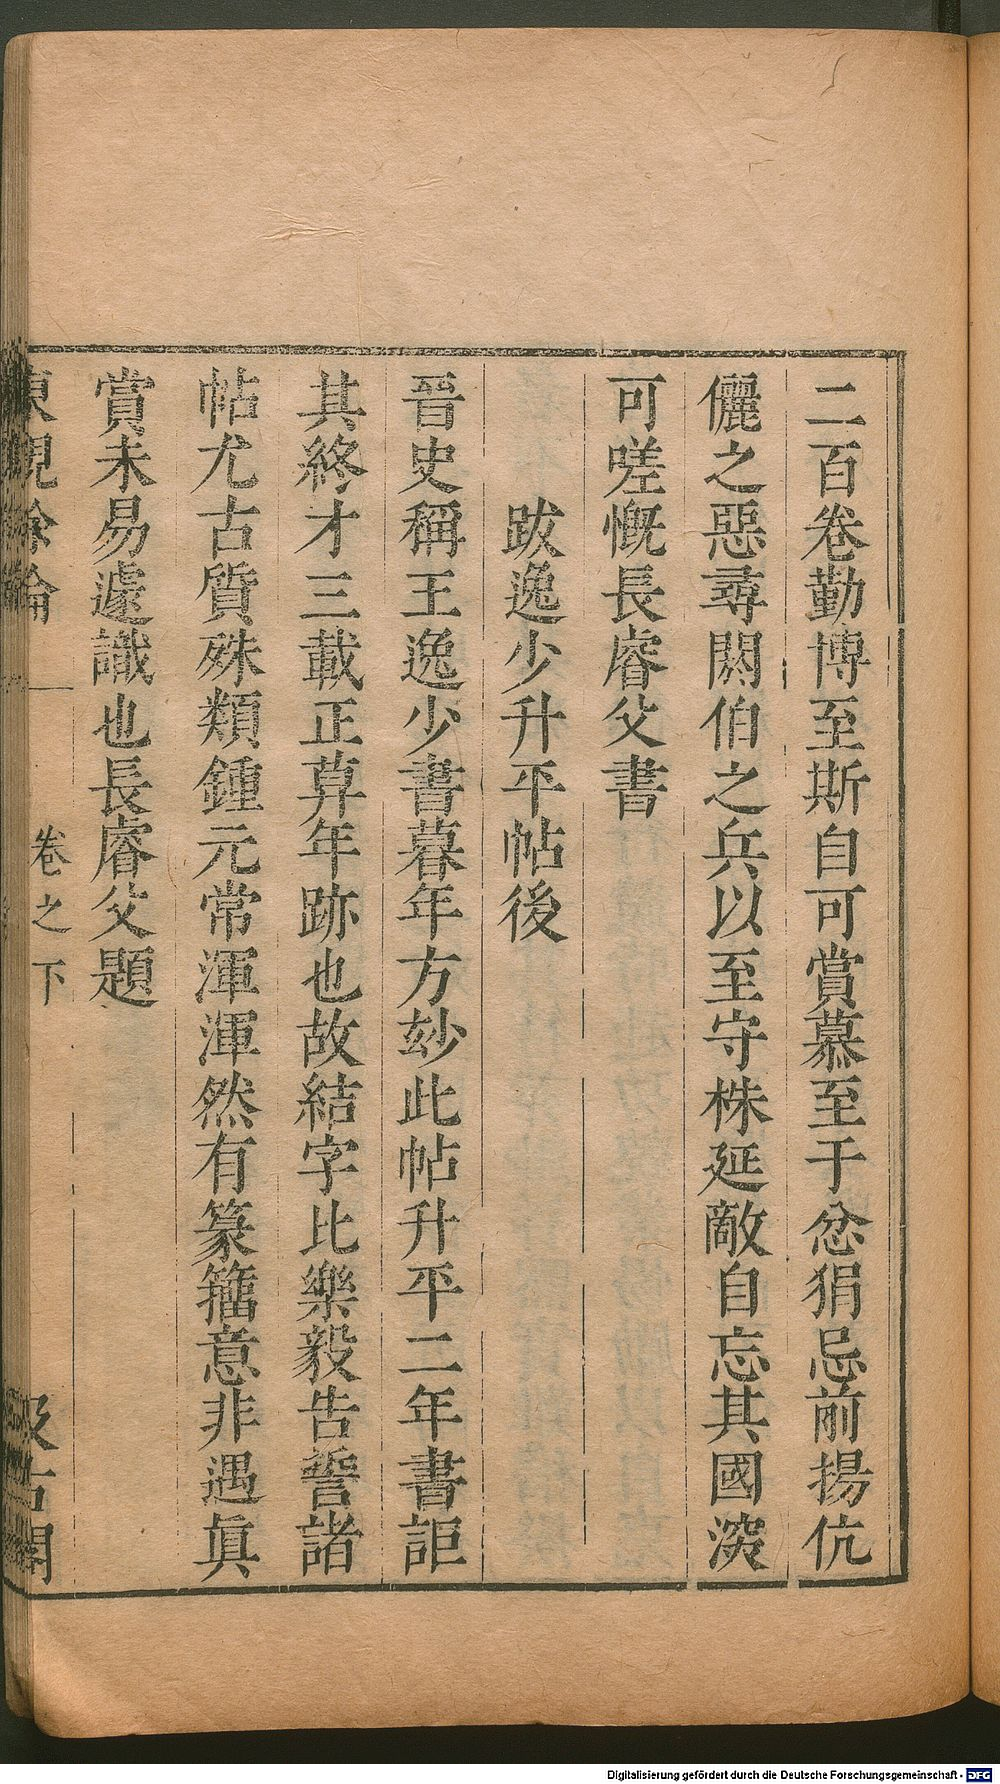 二百卷勤博至斯自可賞慕至于忿狷忌前揚伉
儷之惡尋閼伯之兵以至守株延敵自忘其國深
可嗟慨長睿父書
跋逸少升平帖後
晉史稱王逸少書暮年方玅此帖升平二年書詎
其終才三載正草年跡也故結字比樂毅告誓諸
帖尤古質殊類鍾元常渾渾然有篆籀意非遇眞
賞未易遽識也長睿父題
東觀餘論 卷之下 汲古閣
Digitalisierung gefördert durch die Deutsche Forschungsgemeinschaft - DFG